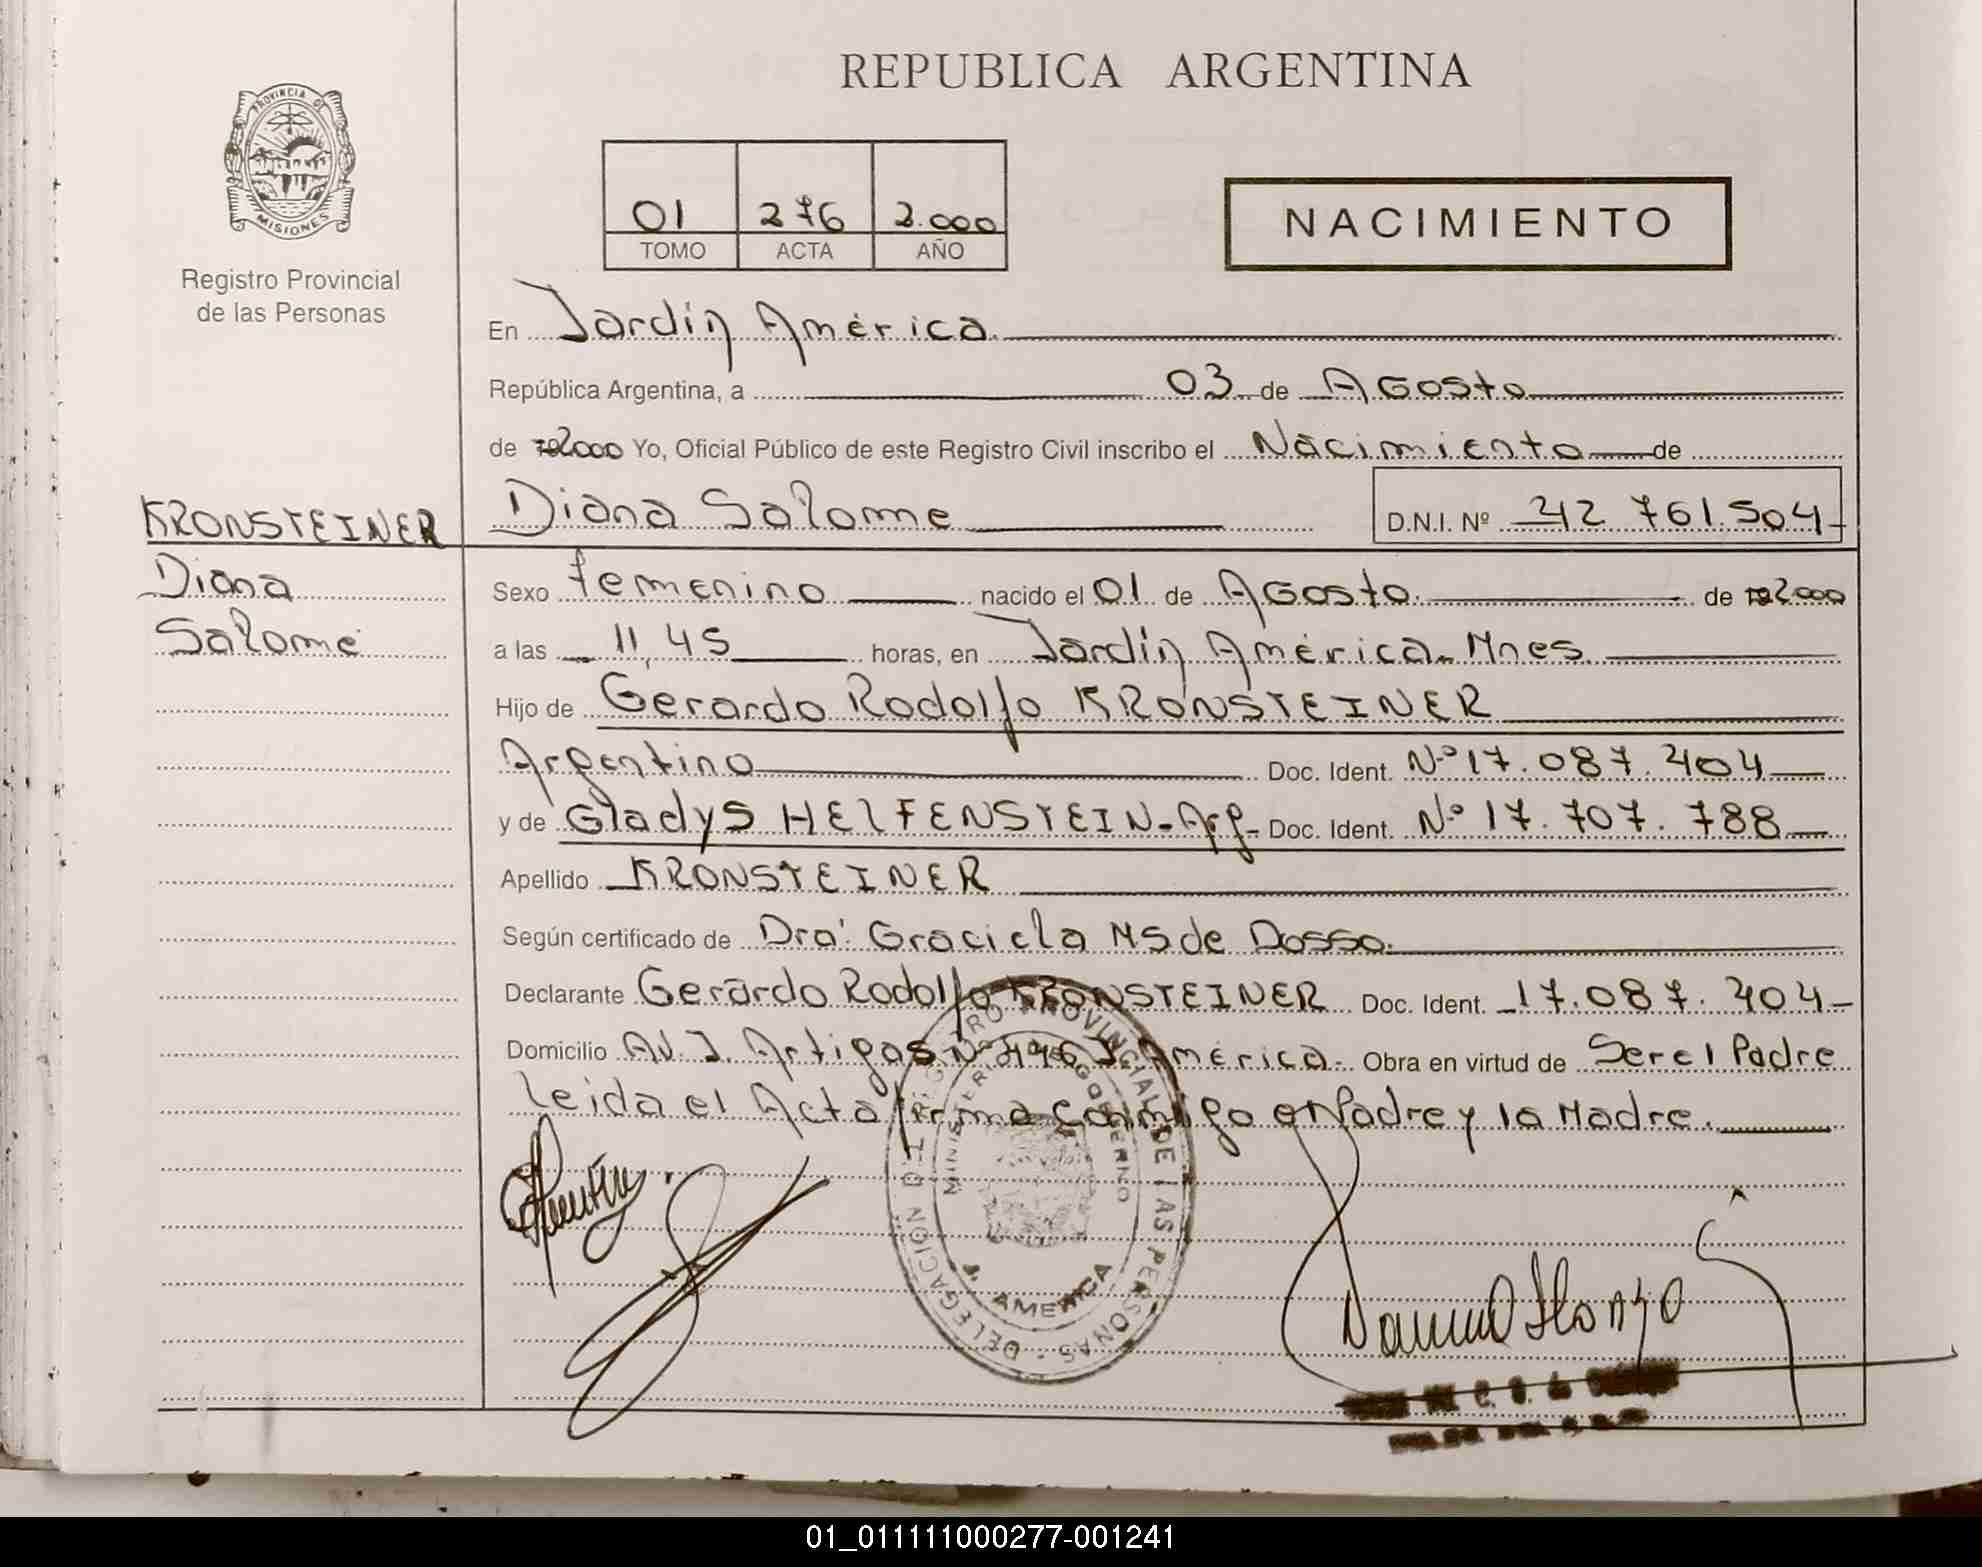 REPUBLICA ARGENTINA
PROVINCIA DE
MISIONES
Registro Provincial
de las Personas
01 276 2.000
TOMO ACTA AÑO
NACIMIENTO
En Jardín América
República Argentina, a 03 de Agosto
de 2000 Yo, Oficial Público de este Registro Civil inscribo el Nacimiento de
KRONSTEINER
Diana
Salome
Diana Salome D.N.I. Nº 42 761.504
Sexo femenino nacido el 01 de Agosto de 2.000
a las 11,45 horas, en Jardín América - Mnes
Hijo de Gerardo Rodolfo KRONSTEINER
Argentino Doc. Ident. Nº 17.087.404
y de Gladys HELFENSTEIN - Arg- Doc. Ident. Nº 17.707.788
Apellido KRONSTEINER
Según certificado de Dra. Graciela MS de Dosso
Declarante Gerardo Rodolfo KRONSTEINER Doc. Ident. 17.087.404
Domicilio Av. J. Artigas Nº J. América - Obra en virtud de Ser el Padre
Leida el Acta firma conmigo el Padre y la Madre.
DELEGACION DEL REGISTRO PROVINCIAL DE LAS PERSONAS
MINISTERIO DE GOBIERNO
J. AMERICA
01_011111000277-001241